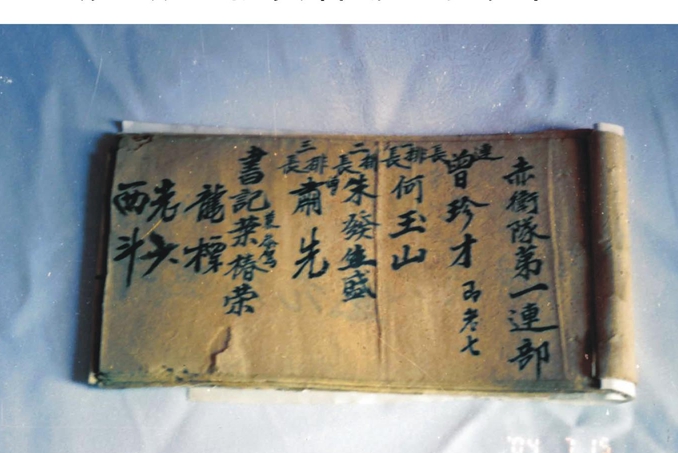 赤衛隊第一連部
連長 曾珍才
一排長 何玉山
二排長 朱發生盛
三排長 肅先
書記葉椿荣
龍標
老六
西斗
'04 7 15